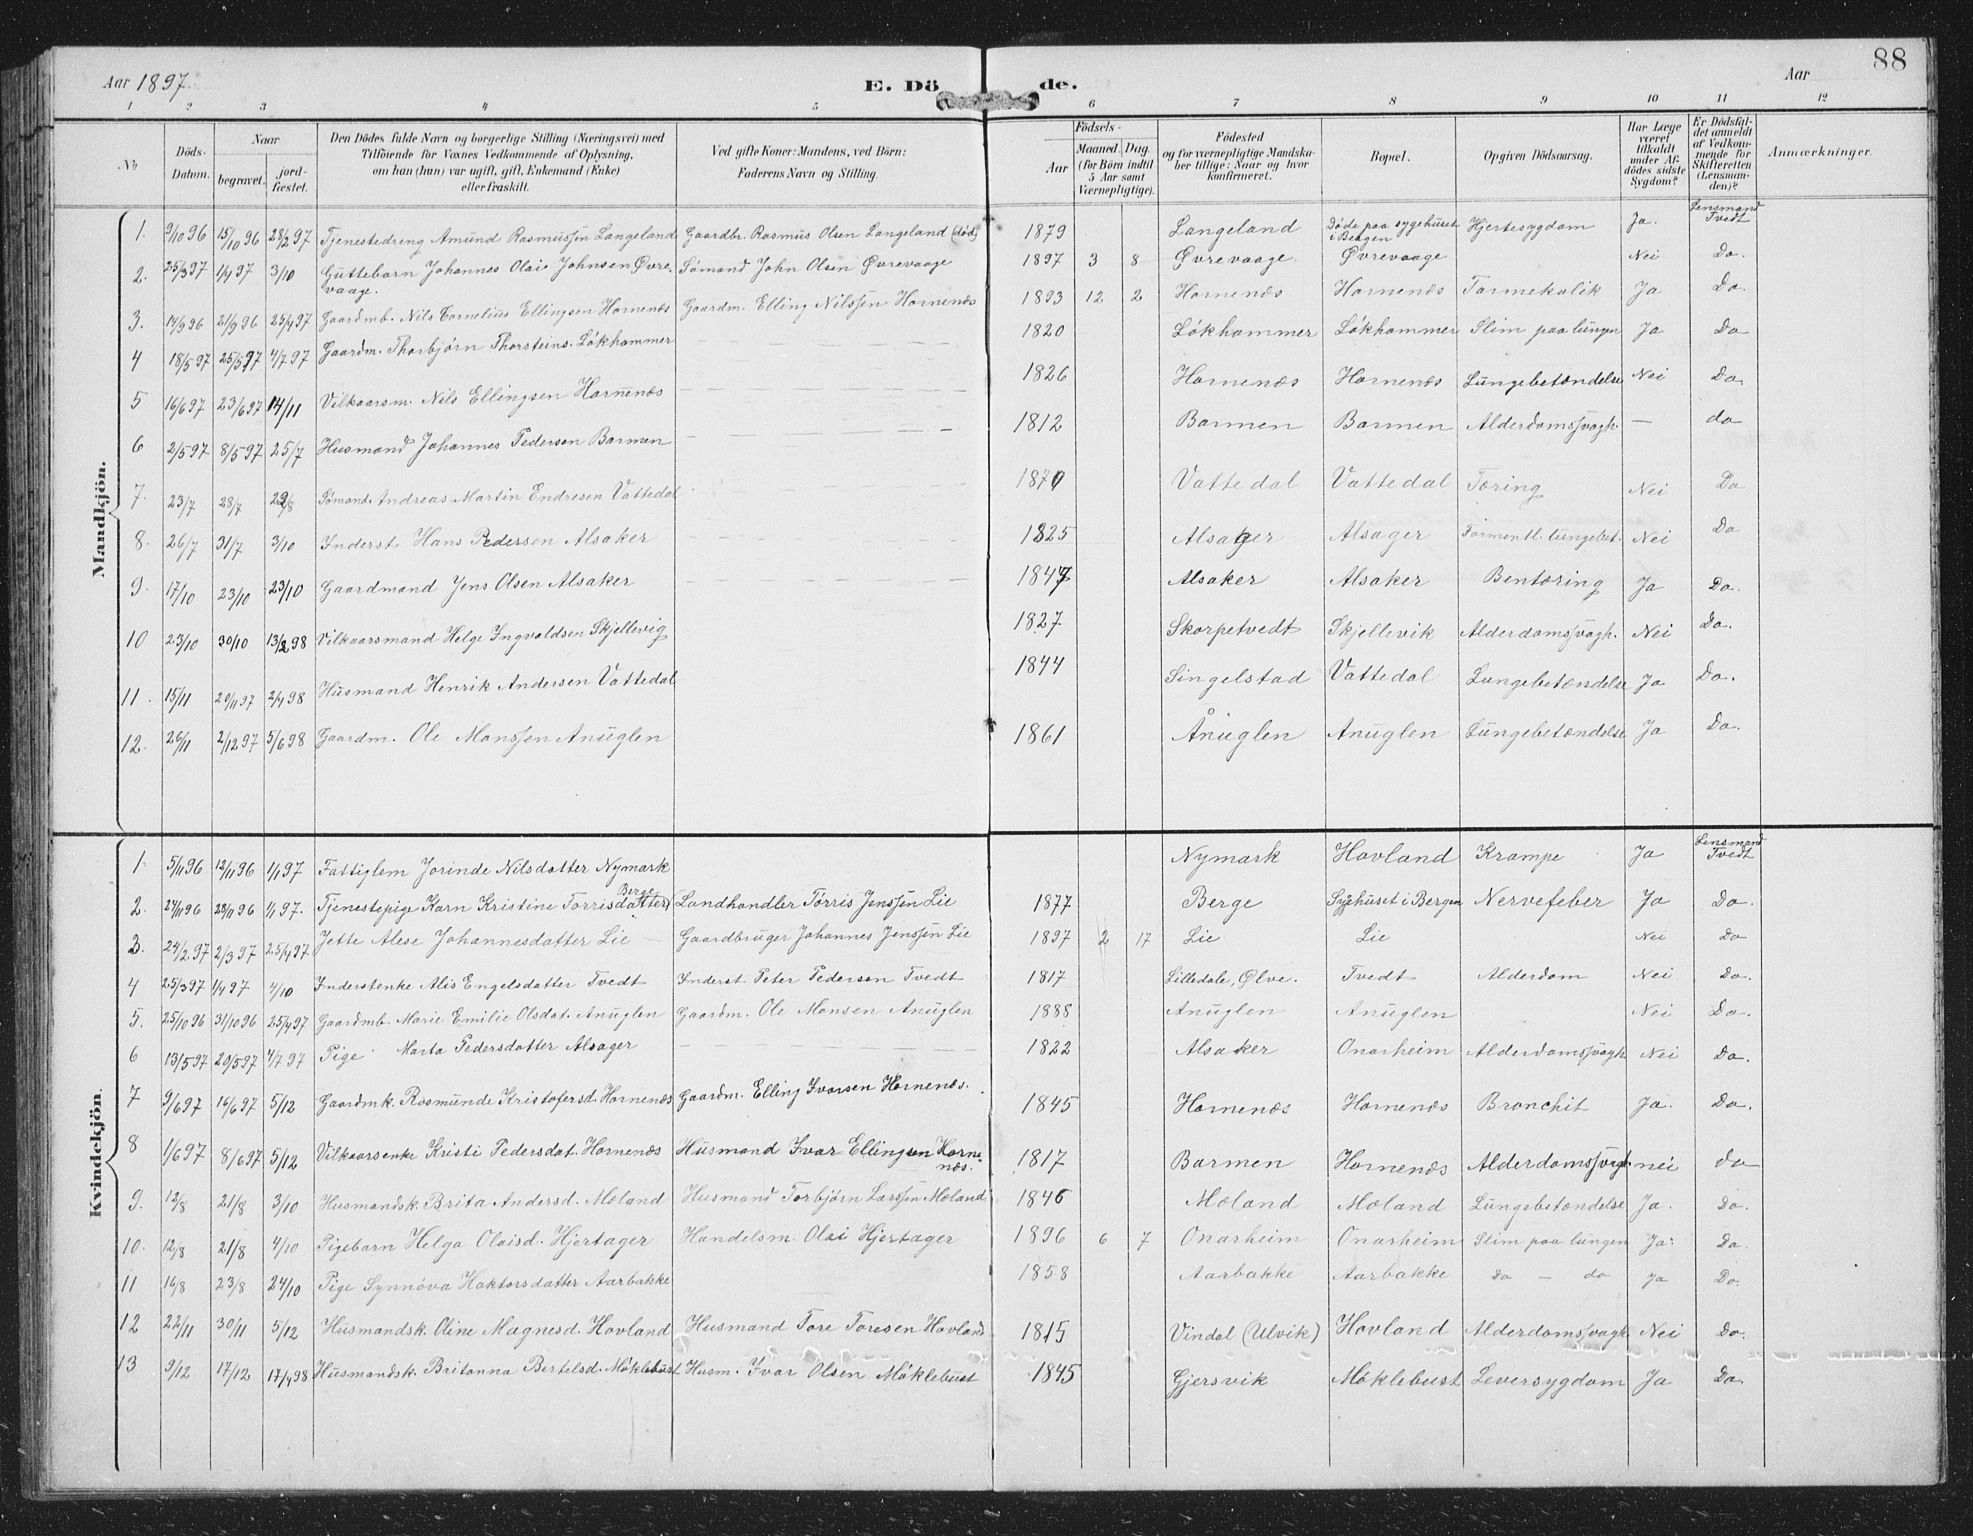 88
Aar 1897. E. Dö de. Aar
1 2 3 4 5 6 7 8 9 10 11 12
No. Döds-Datum. Naar begravet. jordfæstet. Den Dödes fulde Navn og borgerlige Stilling (Næringsvei) med Tilföiende for Voxnes Vedkommende af Oplysning, om han (hun) var ugift, gift, Enkemand (Enke) eller fraskilt. Ved gifte Koner: Mandens, ved Börn: Faderens Navn og Stilling. Födsels- Aar Maaned. Dag. (for Börn indtil 5 Aar samt Værnepligtige). Födested og for værnepligtige Mandskaber tillige: Naar og hvor konfirmeret. Bopæl. Opgiven Dödsaarsag. Har Læge været tilkaldt under Afdödes sidste Sygdom? Er Dödsfaldet anmeldt af Vedkommende for Skifteretten (Lensmanden)? Anmærkninger.
Mandkjön.
1. 9/10 96 15/10 96 28/2 97 Tjenestedreng Amund Rasmussen Langeland Gaardbr. Rasmus Olsen Langeland (död) 1879 Langeland Döde paa sygehuset i Bergen Hjertesygdom Ja. Lensmand Tvedt
2. 25/3 97 1/4 97 3/10 Guttebarn Johannes Olai Johnsen Øvrevaage. Sømand John Olsen Øvrevaage 1897 3 8 Øvrevaage Øvrevaage Nei Do.
3. 14/9 96 21/9 96 25/4 97 Gaardmb. Nils Cornelius Ellingsen Hornenæs Gaardm. Elling Nilssen Hornenæs 1893 12 2 Hornenæs Hornenæs Tarmekolik Ja Do.
4 18/5 97 25/5 97 4/7 97 Gaardm. Thorbjörn Thorsteins. Lökhammer 1820 Lökhammer Lökhammer Slim paa lungen Ja Do
5 16/6 97 23/6 97 14/11 Vilkaarsm. Nils Ellingsen Hornenæs 1826 Hornenæs Hornenæs Lungebetændelse Nei Do.
6 2/5 97 8/5 97 25/7 Husmand Johannes Pedersen Barmen 1812 Barmen Barmen Alderdomssvagh. — do
7. 23/7 28/7 29/8 Sømand Andreas Martin Endresen Vattedal 1870 Vattedal Vattedal Tæring Nei Do
8. 26/7 31/7 3/10 Inderst Hans Pedersen Alsaker 1825 Alsager Alsager Formentl. lungebet. Nei Do
9. 17/10 23/10 23/10 Gaardmand Jens Olsen Alsaker 1847 Alsaker Alsaker Bentæring Ja Do.
10 23/10 30/10 13/2 98 Vilkaarsmand Helge Ingvaldsen Skjellevig 1827 Skorpetvedt Skjellevik Alderdomssvagh. Nei Do.
11. 15/11 20/11 97 2/4 98 Husmand Henrik Andersen Vattedal 1844 Singelstad Vattedal Lungebetændelse Ja Do.
12. 26/11 2/12 97 5/6 98 Gaardm. Ole Monssen Anuglen 1861 Ånuglen Anuglen Lungebetændelse Ja Do.
Kvindekjön.
1. 5/11 96 12/11 96 1/1 97 Fattiglem Jorinde Nilsdatter Nymark Nymark Hovland Krampe Ja Lensmand Tvedt
2. 28/10 96 1/1 97. Tjenestepige Karn Kristine Torrisdatter Berge Landhandler Törris Jenssen Lie 1877 Berge Sygehuset i Bergen Nervefeber Ja Do.
3. 24/2 97 2/3 97 25/4 97 Jette Alese Johannesdatter Lie Gaardbruger Johannes Jenssen Lie 1897 2 17 Lie Lie Nei Do
4 25/3 97 1/4 97 4/10 Inderstenke Alis Engelsdatter Tvedt Inderst Peter Pedersen Tvedt 1817 Lilledale, Ølve. Tvedt Alderdom Nei Do.
5. 25/10 96 31/10 96 25/4 97 Gaardmb. Marie Emilie Olsdat. Anuglen Gaardm. Ole Monsen Anuglen 1888 Anuglen Anuglen Nei Do.
6 13/5 97 20/5 97 4/7 97 Pige Marta Pedersdatter Alsager 1822 Alsaker Onarheim Alderdomssvagh Nei Do.
7 9/6 97 16/6 97 5/12 Gaardmk. Rasmunde Kristofersd. Hornenæs Gaardm. Elling Ivarsen Hornenæs. 1845 Hornenæs Hornenæs Bronchit Ja. Do.
8 1/6 97 8/6 97 5/12 Vilkaarsenke Kristi Pedersdat. Hornenæs Husmand Ivar Ellingsen Hornenæs. 1817 Barmen Hornenæs Alderdomssvagh nei do
9. 12/8 21/8 3/10 Husmandsk. Brita Andersd. Mæland Husmand Torbjörn Larssen Mæland 1846 Mæland Mæland Lungebetændelse Ja. Do.
10. 12/8 21/8 4/10 Pigebarn Helga Olaisd. Hjertager Handelsm. Olai Hjertager 1896 6 7 Onarheim Onarheim Slim paa lungen Ja. Do.
11 16/8 23/8 24/10 Pige Synnöva Haktorsdatter Aarbakke 1858 Aarbakke Aarbakke do — do Ja Do.
12 22/11 30/11 5/12 Husmandsk. Oline Magnesd. Hovland Husmand Tore Toresen Hovland 1815 Vindal (Ulvik) Hovland Alderdomssvagh Nei Do.
13 9/12 17/12 17/4 98 Husmandsk. Britanna Bertelsd. Möklebust Husm. Ivar Olsen Möklebust 1845 Gjersvik Möklebust Leversygdom Ja Do.